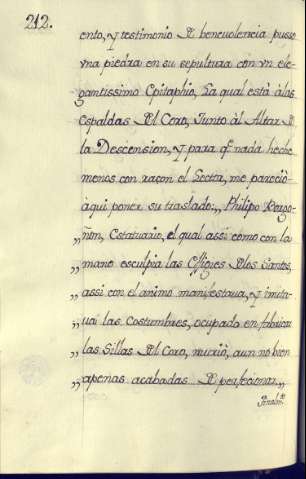 212.
ento, y testimonio de beneuolencia pusso
vna piedra en su sepultura con vn ele-
gantissimo Epitaphio, la qual està àlas
espaldas del Coro, Junto àl Altar de
la Descension, y para qe. nada heche
menos con raçon el Lector, me pareciò
àqui poner su traslado:,, Philipo Borgo-
,,ñon, Estatuario, el qual assi como con la
mano esculpia las Efigies delos Santos,
,,assi con el animo manifestaua, y imita-
uai las Costumbres, ocupado en fabricar
,,las Sillas del Coro, muriò, aun no bien
,,apenas acabadas de perfecionar,,